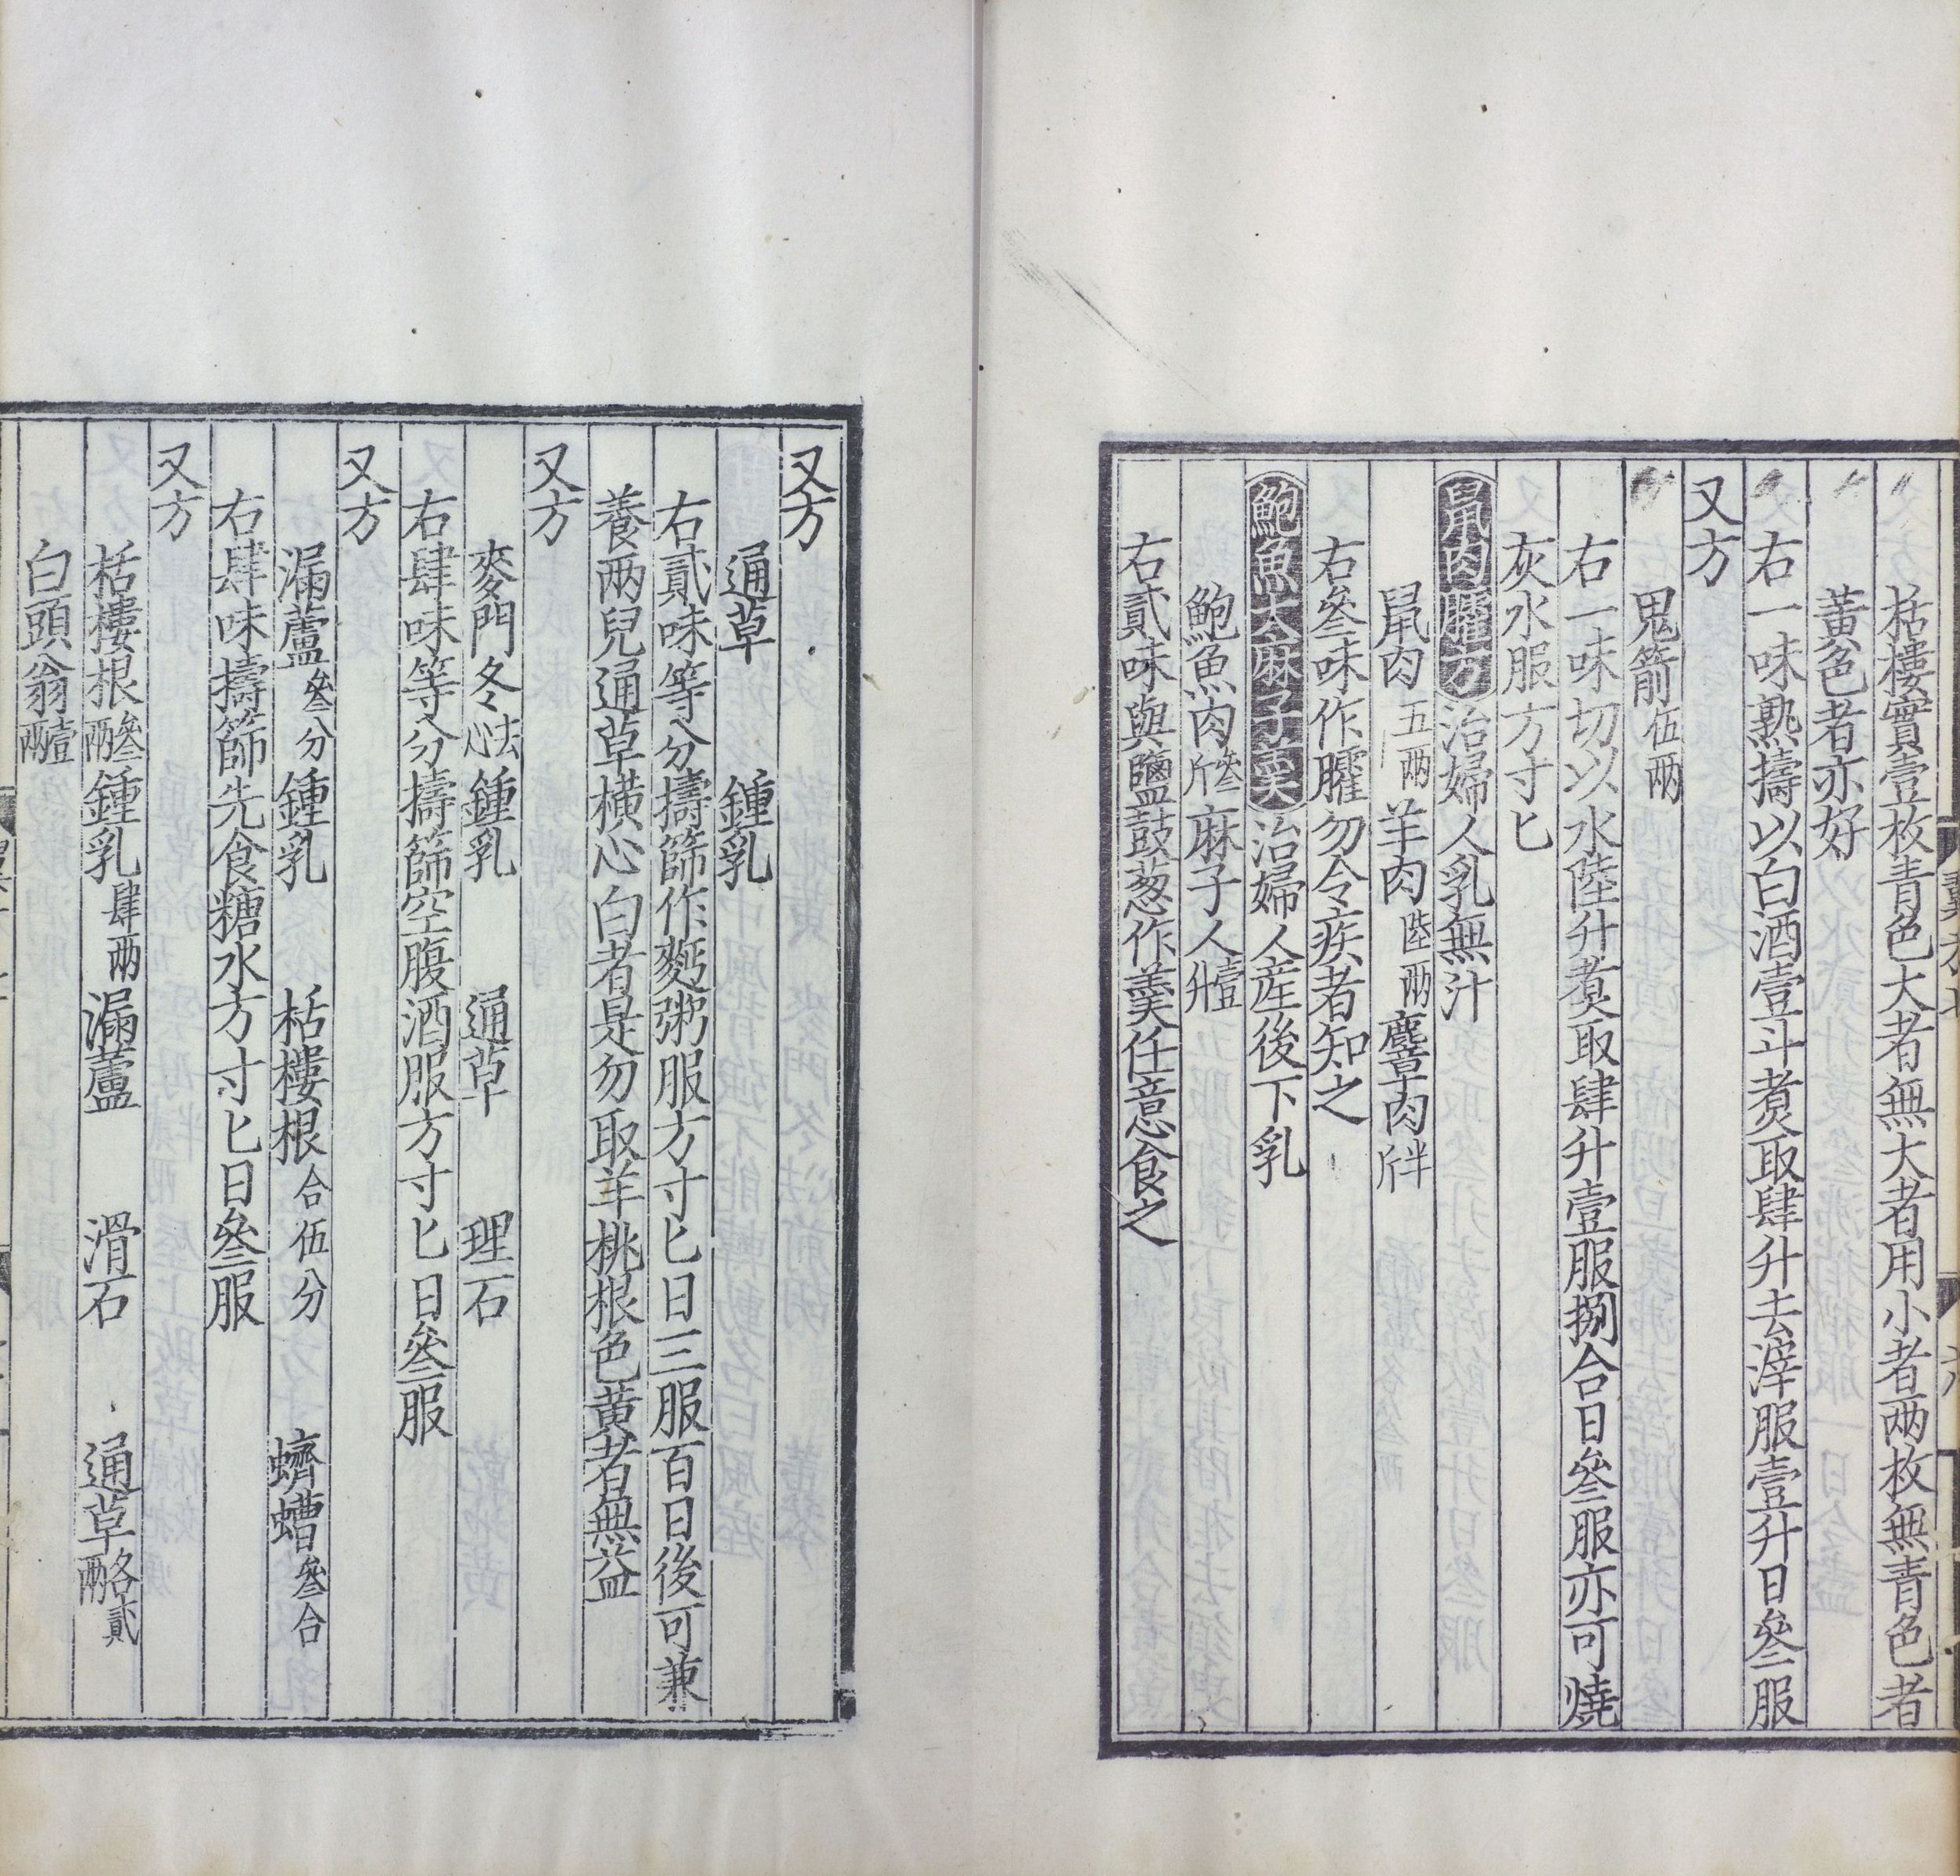 栝樓實壹枚青色大者無大者用小者兩枚無青色者
黃色者亦好
右一味熟擣以白酒壹斗煑取肆升去滓服壹升日叄服
又方
鬼箭伍兩
右一味切以水陸升煑取肆升壹服捌合日叄服亦可燒
灰水服方寸匕
鼠肉臛方治婦人乳無汁
鼠肉五兩羊肉陸兩麞肉半斤
右叄味作臛勿令疾者知之
鮑魚大麻子羹治婦人産後下乳
鮑魚肉叄斤麻子人壹升
右貳味與鹽豉葱作羹任意食之
又方
通草 鍾乳
右貳味等分擣篩作麪粥服方寸匕日三服百日後可兼
養兩兒通草橫心白者是勿取羊桃根色黃者無益
又方
麥門冬去心鍾乳 通草 理石
右肆味等分擣篩空腹酒服方寸匕日叄服
又方
漏蘆叄分鍾乳 栝樓根合伍分 蠐螬叄合
右肆味擣篩先食糖水方寸匕日叄服
又方
栝樓根叄兩鍾乳肆兩漏蘆 滑石 通草各貳兩
白頭翁壹兩